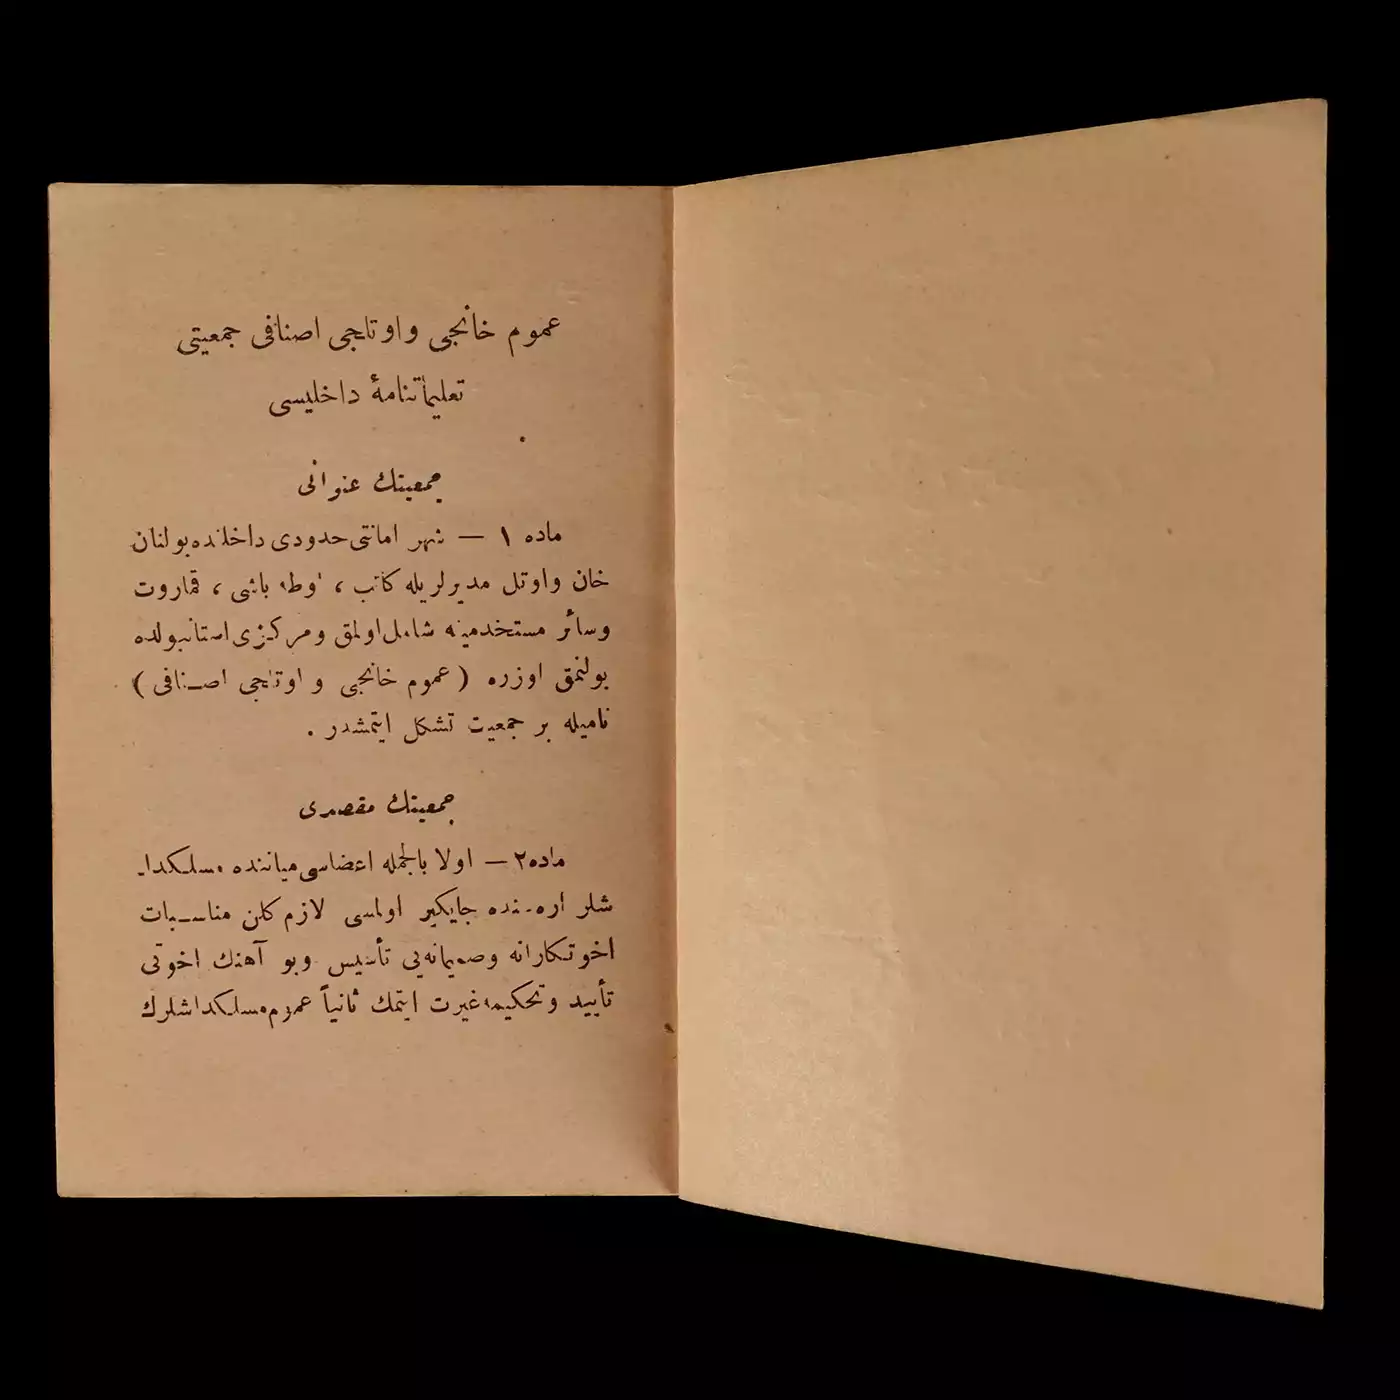 عموم خانجی و اوتلجی اصنافی جمعیتی
تعلیماتنامهٔ داخلیسی
جمعیتك عنوانی
ماده ١ — شهر امانتی حدودی داخلنده بولنان
خان واوتل مدیرلریله كاتب ، اوطه باشی ، قماروت
وسائر مستخدمینه شامل اولمق ومركزی استانبولده
بولنمق اوزره ( عموم خانجی و اوتلجی اصنافی )
نامیله بر جمعیت تشكل ایتمشدر .
جمعیتك مقصدی
ماده ٢ — اولا بالجمله اعضاسی میاننده مسلكدا-
شلر اره‌سنده جایكیر اولمسی لازم كلن مناسبات
اخوتكارانه وصمیمانه‌یی تأسیس وبو آهنك اخوتی
تأیید وتحكیمه غیرت ایتمك ثانیاً عموم مسلكداشلرك